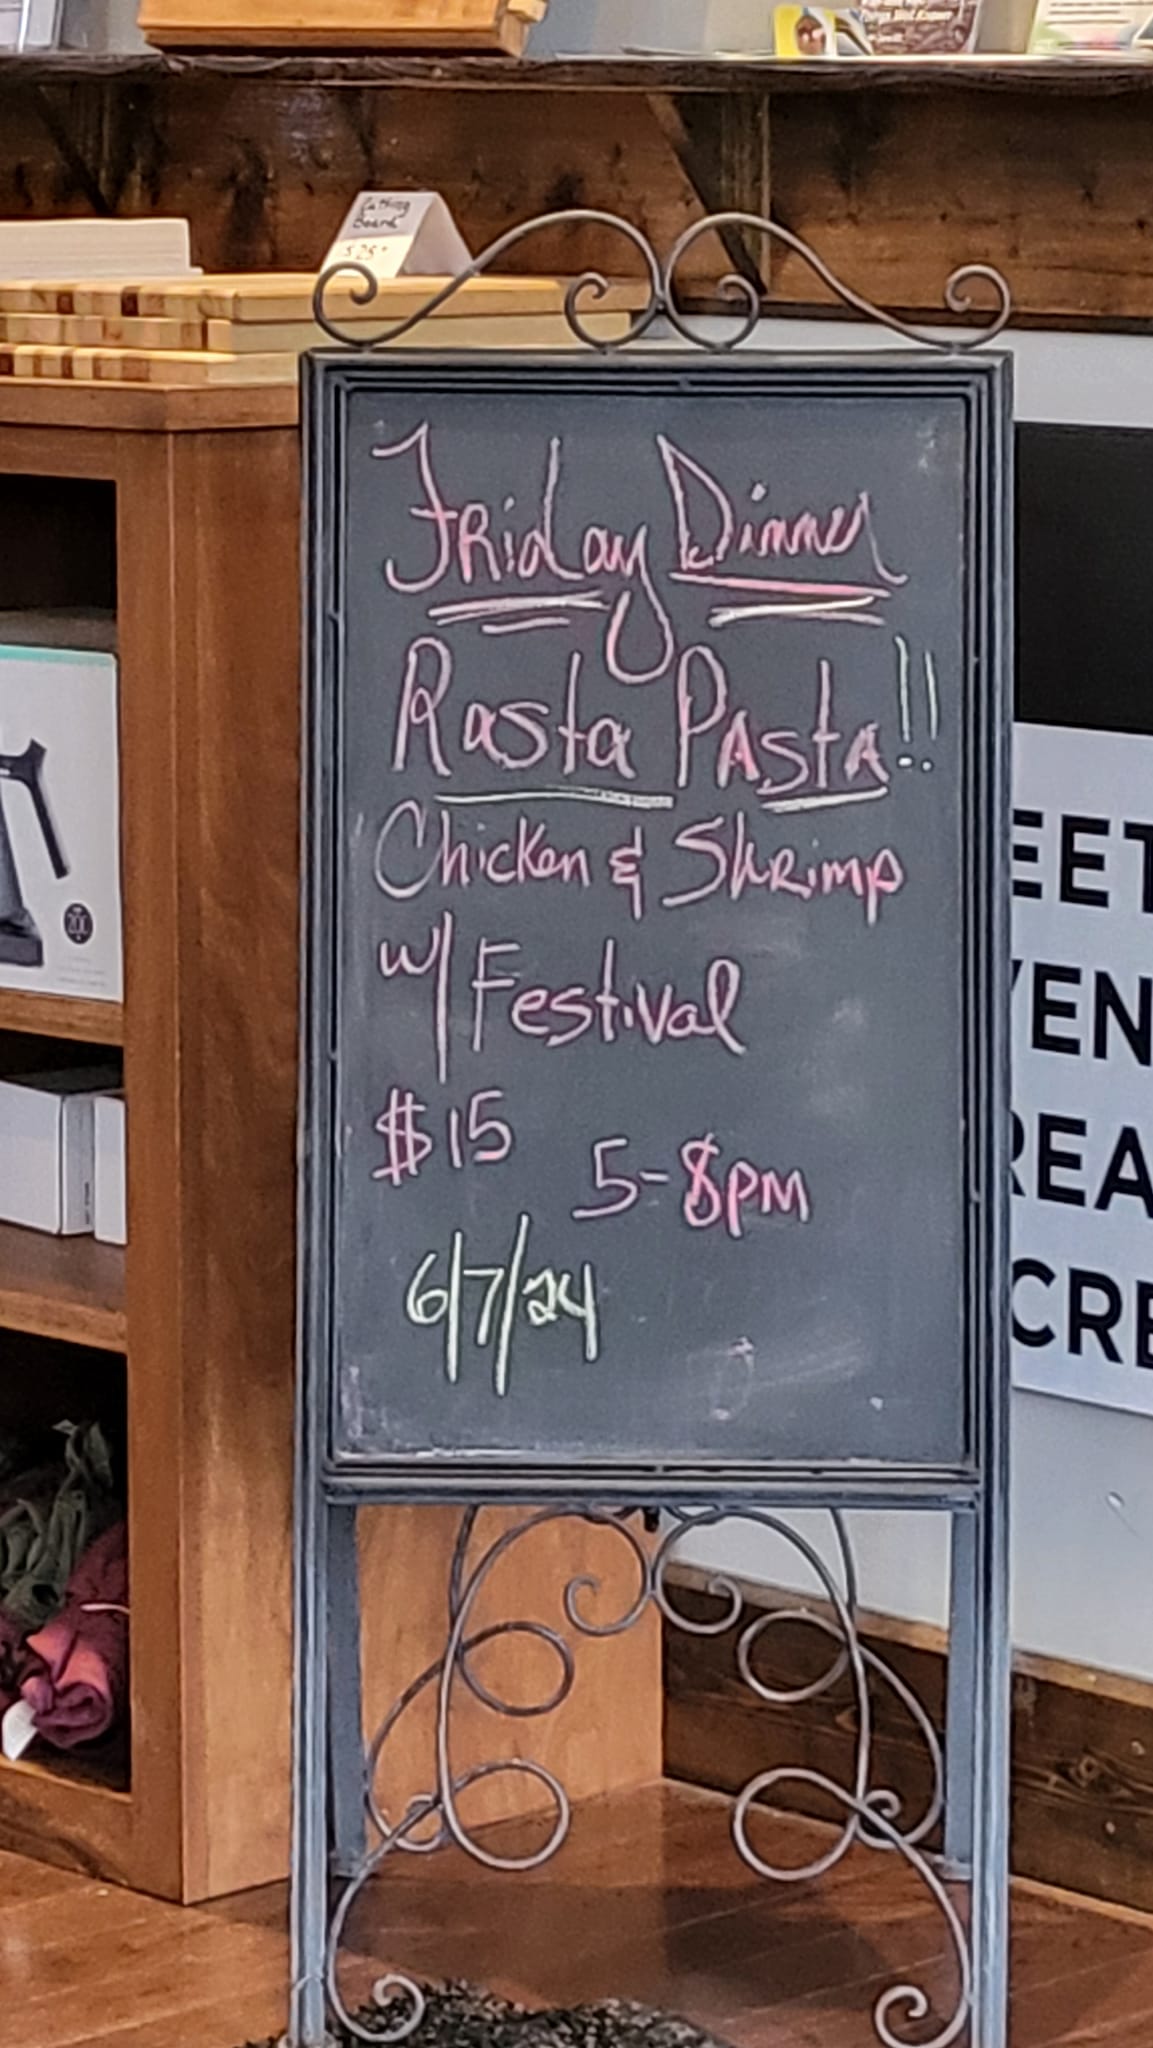 Cutting
Board
$25
Friday Dinner
Rasta Pasta!!
Chicken & Shrimp
w/ Festival
$15
5-8pm
6/7/24
EET
VEN
REA
CRE